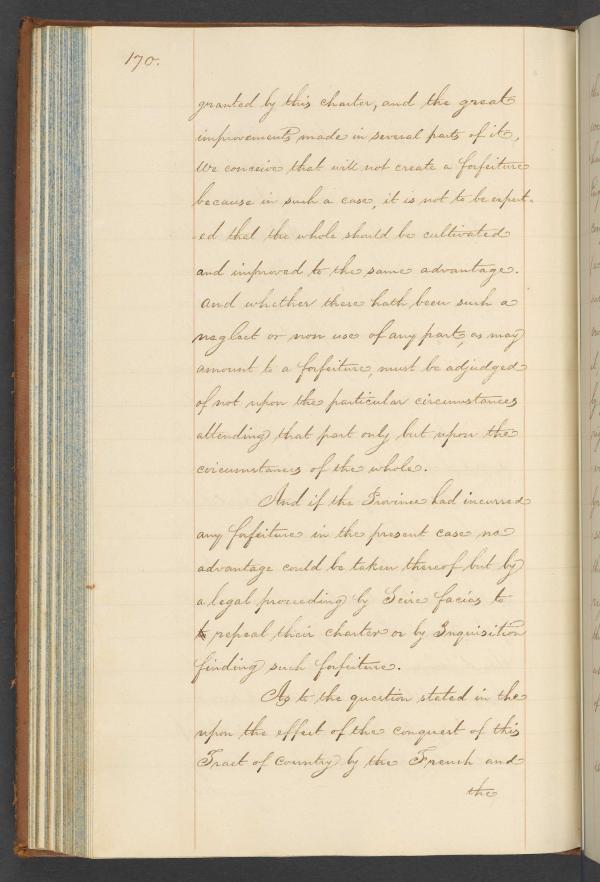 170.
granted by this charter, and the great
improvements made in several parts of it,
We conceive that will not create a forfeiture
because in such a case, it is not to be expect-
-ed that the whole should be cultivated
and improved to the same advantage.
And whether there hath been such a
neglect or non use of any part, as may
amount to a forfeiture, must be adjudged
of not upon the particular circumstances
attending that part only but upon the
circumstances of the whole.
And if the Province had incurred
any forfeiture in the present case no
advantage could be taken thereof but by
a legal proceeding by Scire facias to
to repeal their charter or by Inquisition
finding such forfeiture.
As to the question stated in the
upon the effect of the conquest of this
Tract of Country by the French and
the